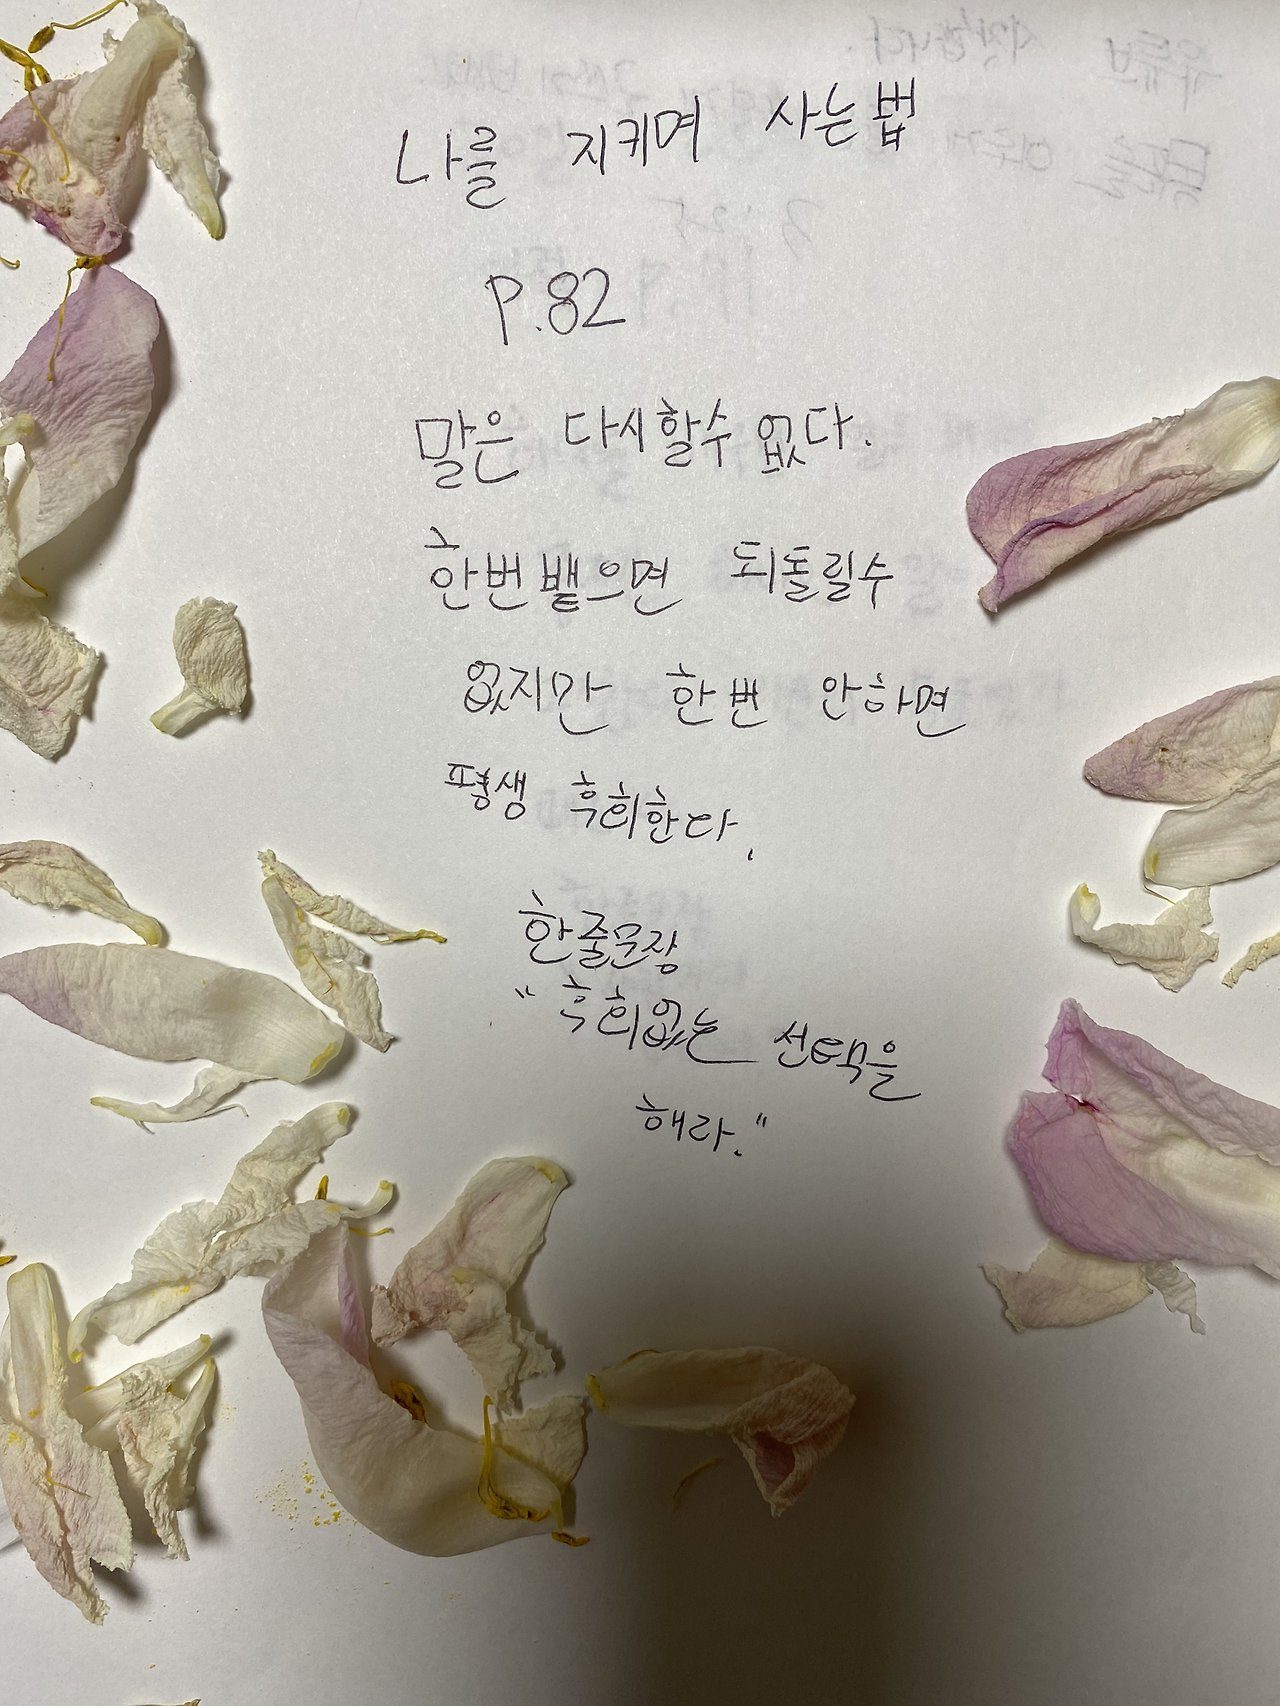 나를 지키며 사는 법
P.82
말은 다시할수 없다.
한번 뱉으면 되돌릴수
없지만 한번 안하면
평생 후회한다.
한줄문장
"후회없는 선택을
해라."